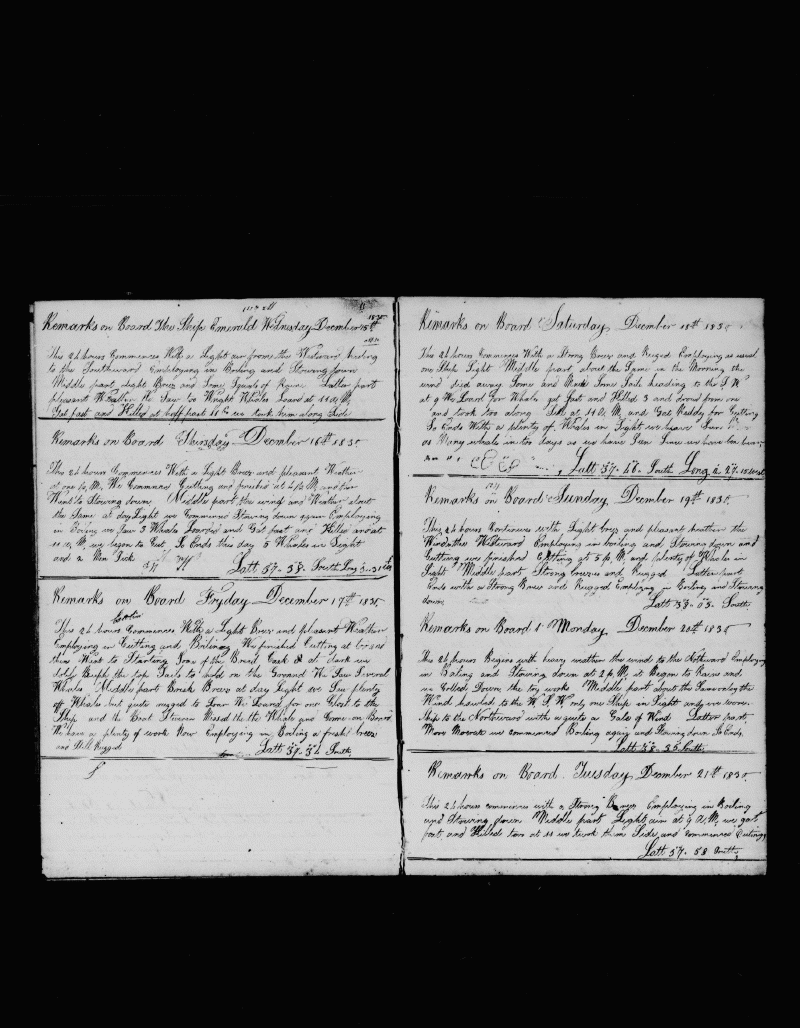 Remarks on Board The Ship Emerald Wednesday December 15th 1830
This 24 hours Commences With a Light air from the Wistward heading
to the Southward Employing in Boiling and Stowing down
Middle part Light Bries and Some Squals of Raine Latter part
pleasant Weather We Saw too Wright Whales Loard at 11 A, M,
Got fast and Killed at half past 11 we took him along Side
Remarks on Board Thursday December 16th 1830
This 24 hours Commences With a Light Bries and pleasant Weather
at one P, M, We Commenced Cutting and finished at 4 P M, and then
Went to Stowing down Middle part the wind and Weather about
the Same at day Light we Commence Stowing down again Employing
in Boiling we Saw 3 Whales Loard and Got fast and Killed and at
11 A, M we began to Cut So Ends this day 5 Whales in Sight
and 2 Men Sick
Latt 37.. 38.. South Long
Remarks on Board Fryday December 17th 1830
This 24 hours Commences With a Light Bries and pleasant Weather
Employing in Cutting and Boiling We finished Cutting at
then Went to Starting Some of the Bread Cask & at dark we
doble Rieph the top Sails to hold on the Ground We Saw Several
Whales Middle part Brisk Bries at day Light we Saw plenty
of Whales but quite rugged to Loar We Loard for one Close to the
Ship and the Boat Stearer Missed the the Whale and Come on Board
We have a plenty of work Now Employing in Boiling a fresh breez
and Still Rugged
Latt 37.. 34 South
Remarks on Board Saturday December 18th 1830
This 24 hours Comences With a Strong Bries and Ruged Employing as usual
one Ship in Sight Middle part about the Same in the Morning the
wind died away Some and Made Some Sale heading to the S W
at 9 We Loard For Whale got fast and Killed 3 and drawd from one
and took too along Side at 11 A, M and Got Reddy for Cutting
So Ends With a plenty of Whales in Sight we have Seen
as Many whale in two days as we have Seen Since we have ben
Latt 37.. 46.. South Long
Remarks on Board Sunday December 19th 1830
This 24 hours Continues with Light Bries and pleasant weather the
Wind at the Westward Employing in boiling and Stowing down and
Cutting we finished Cutting at 5 P, M and plenty of Whales in
Sight Middle part Strong breezes and Rugged Latter part
Ends with a Strong Bries and Rugged Employing in Boiling and Stowing
down
Latt 38.. 03.. South
Remarks on Board Monday December 20th 1830
This 24 hours Begins with heavy weather the wind to the Northward Employing
in Boiling and Stowing down at 2 P M, it Began to Raine and
we Colled Down the try works Middle part about the Same only the
Wind hawled to the W S W only one Ship in Sight and we wore
Ship to the Northward with a quite a Gale of Wind Latter part
More Moderate we commenced Boiling again and Stowing down So Ends
Latt 38.. 36 South
Remarks on Board Tuesday December 21st 1830
This 24 hours commences with a Strong Breeze Employing in Boiling
and Stowing down Middle part Light airs at 9 A, M, we got
fast and Killed two at 11 we took them Side and Commenced Cutting
Latt 37.. 58 South